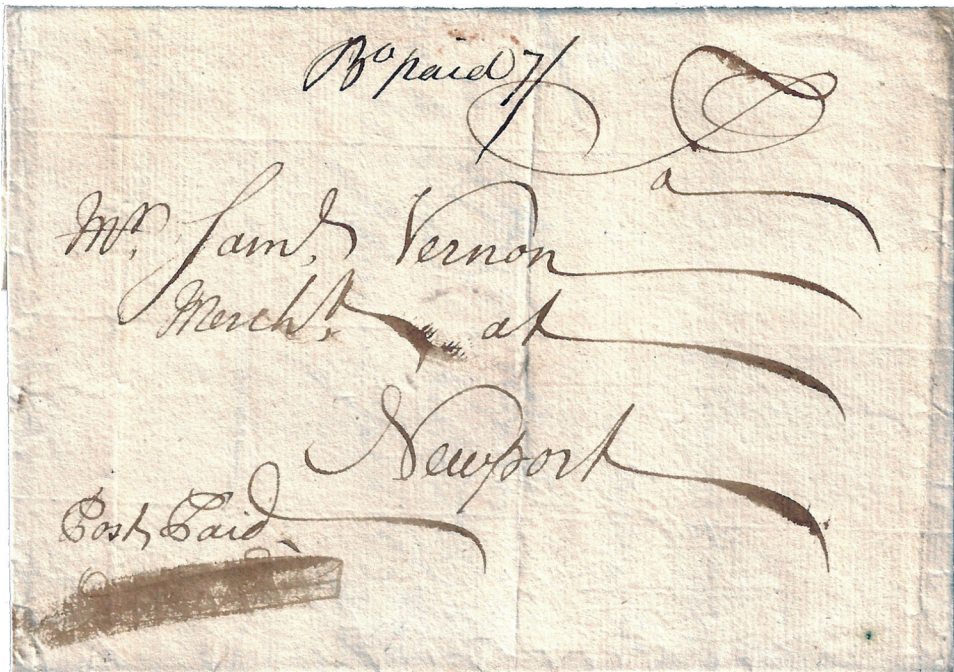 Bo paid 7/
To
Mr. Saml. Vernon
Mercht. at
Newport
Post Paid